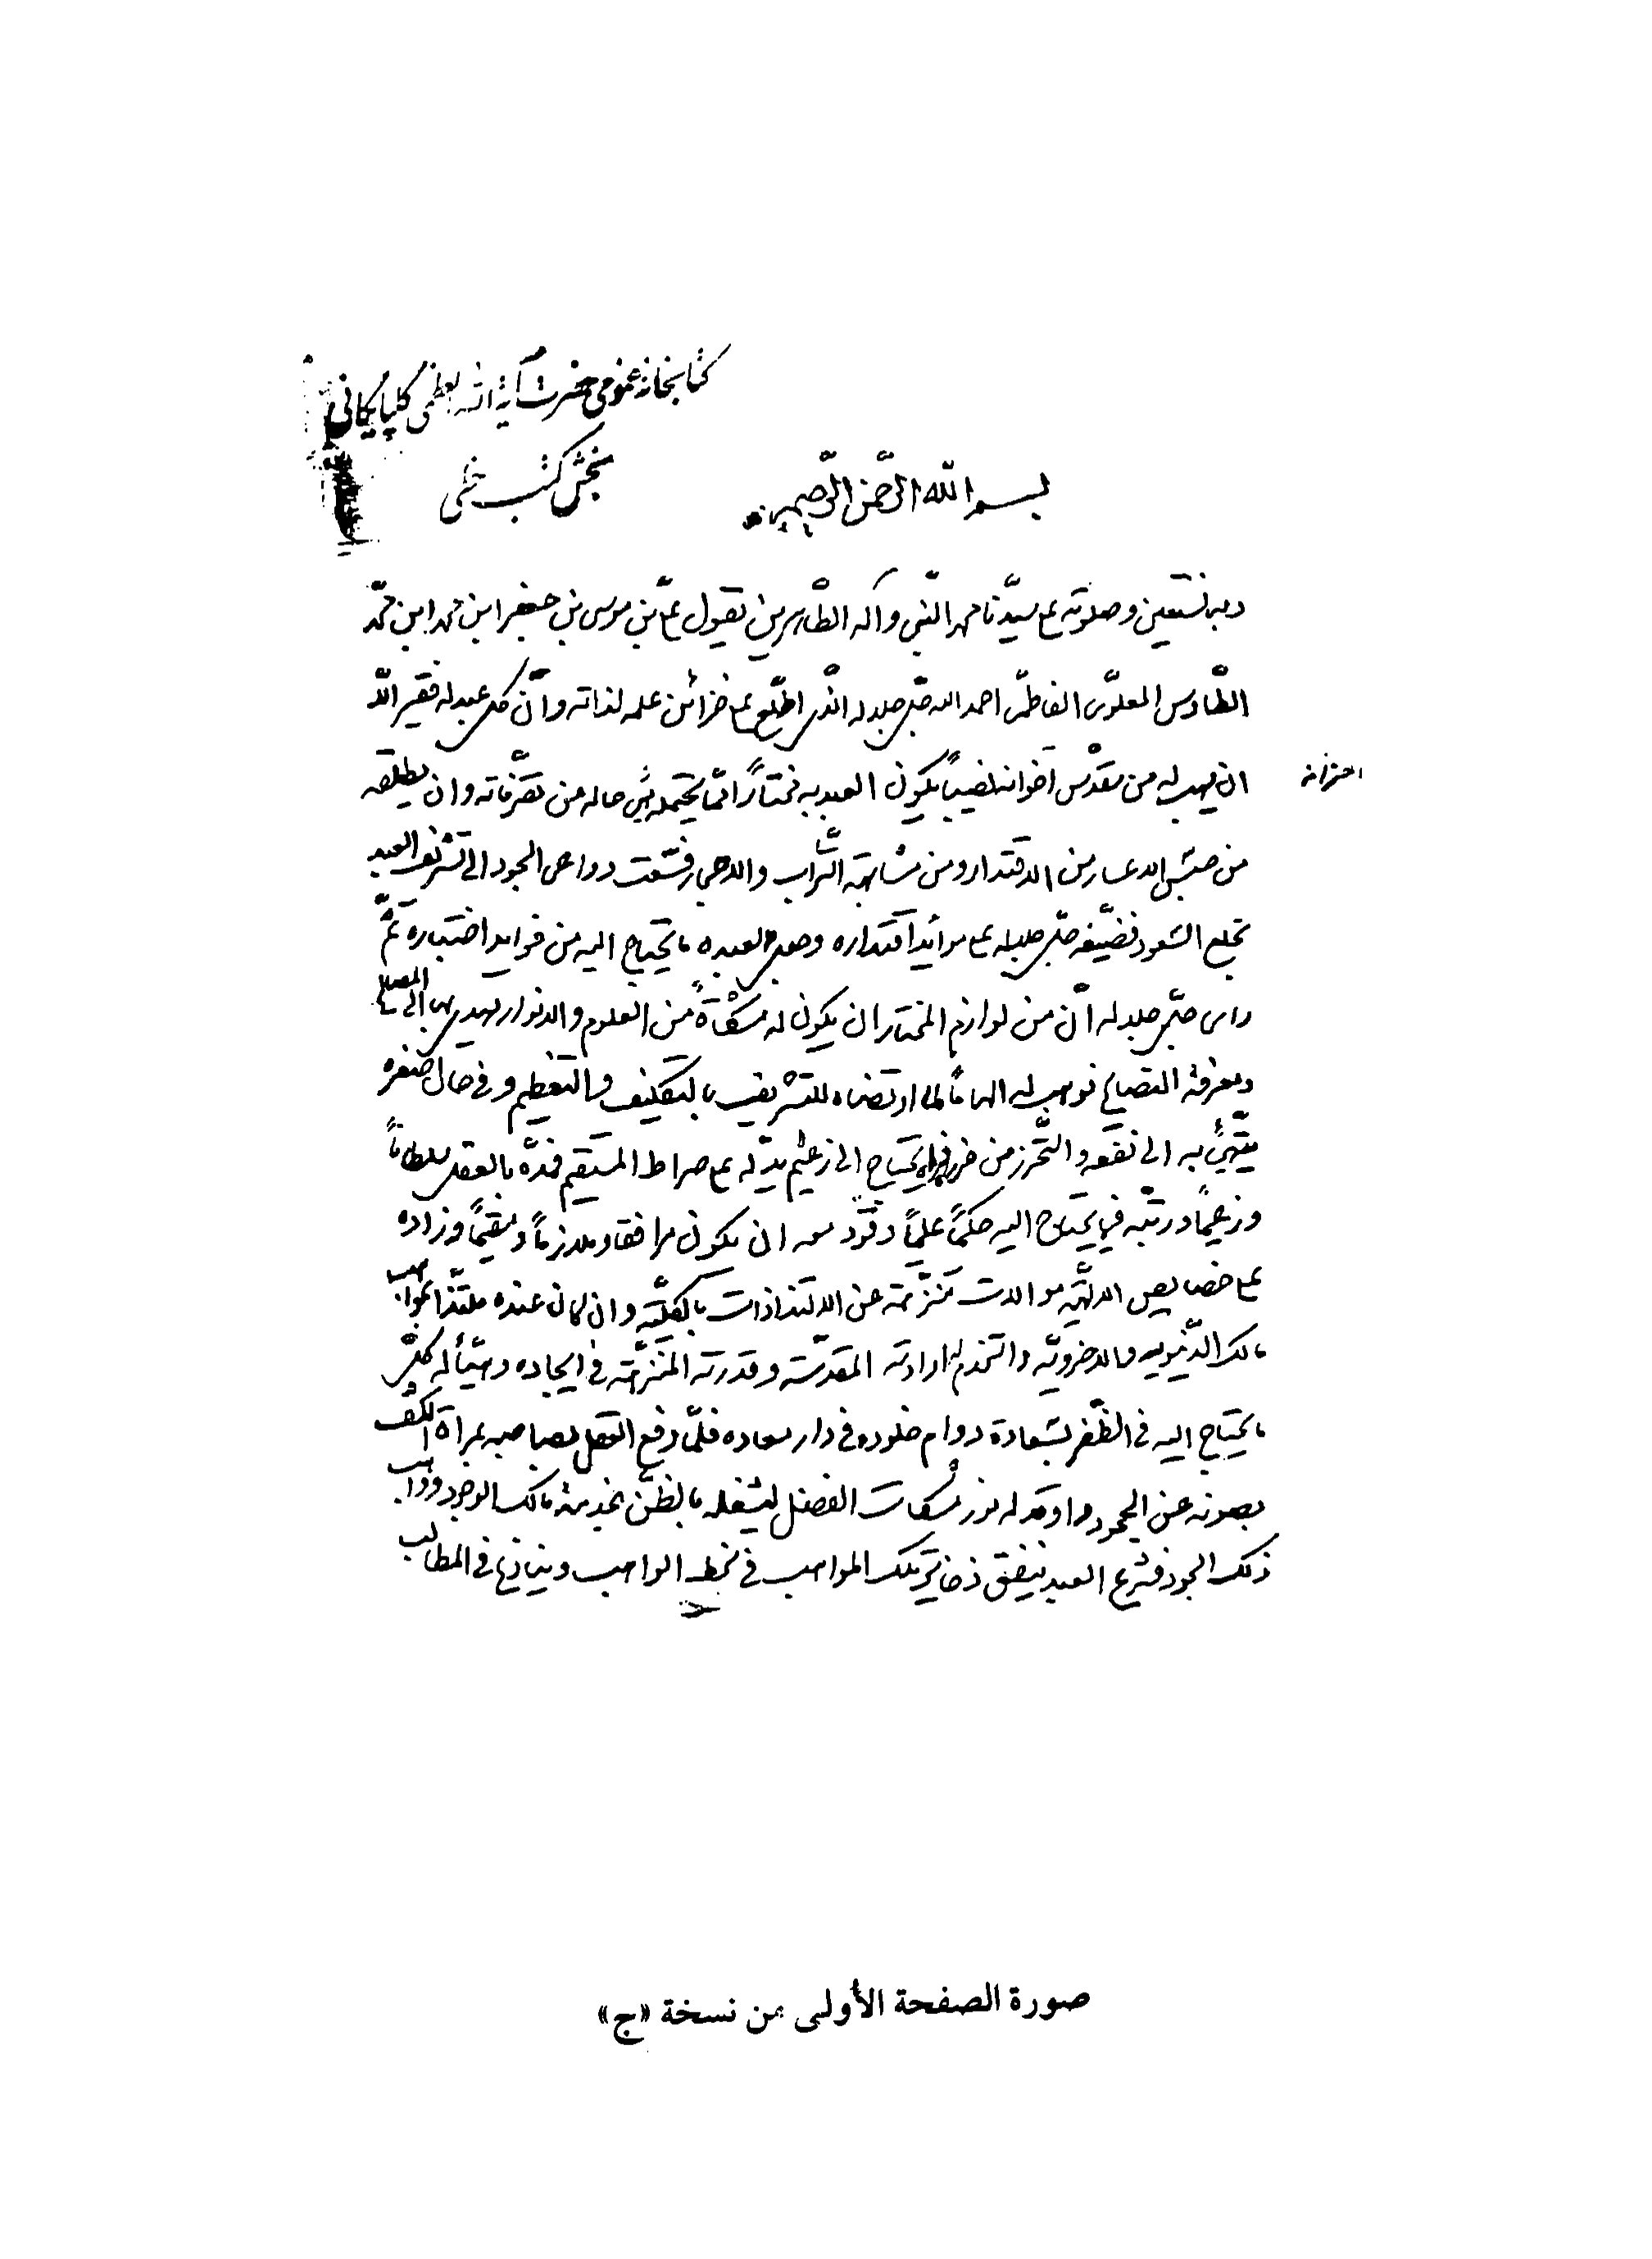 كتابخانه عمومى حضرت آية الله العظمى گلپايگانى
بخش كتب خطى
بسم الله الرحمن الرحيم
وبه نستعين وصلوته ع سيّدنا محمد النبى وآله الطّاهرين يقول علىّ بن موسى بن جعفر ابن محمد ابن محمّد
الطّاوس العلوّى الفاطمّى احمد الله جلّ جلاله الّذى اطّلع ع خزائن علمه لذاته وانّ كل عبد له فقير الّا
ان يهب له من مقدّس نصيباً يكون العبد به مختاراً حاله من تصرّفاته وان يطلقه
احزانه
من حبس الاعسار من الاقتدار ومن مشابهة التّراب والاحجار دواعى الجود الى تشريف العبد
بخلع السّعود فضيّفه جلّ جلاله ع موائد اقتداره ما يحتاج اليه من فوايد اختياره ثمّ
راى جلّ جلاله انّ من لوازم المختار ان يكون له مشكاةً من العلوم والانوار يهديه بها الى المصالح
ومعرفة النصايح فوهب له الهاماً لما ارتضاه للتشريف بالتكليف والتعظيم وفى حال صغره
به الى نفعه والتّحرز من ضرره يحتاج الى زعيم يدلّه ع صراط المستقيم فمدّه بالعقل سلطاناً
وزعيماً ورتّبه فيما يحتاج اليه حكيماً عليماً ان يكون مرافقا وملازماً ومقيماً وزاده
ع خصايص منزّهة عن الالتذاذات بالكليّة وان كان عنده ملتذّا بمواهب
مالك الدّنيويه والاخرويّه واستخدم له ارادته المقدّسة وقدرته المنزّهة فى ايجاده وهيّأ له كلّ
ما يحتاج اليه فى الظّفر بسعادة دوام خلوده فى دار معاده فلمّا رفع العقل لصاحبه بمراة الكشف
يصونه عن الجحود واوقد له نور مشكات الفضل ليشغله بخدمة مالك الوجود وواهب
ذلك الجود فشرع العبد ينفق ذخاير تلك المواهب فى سخط الواهب وينازع فى المطالب
صورة الصفحة الأولى من نسخة «ج»